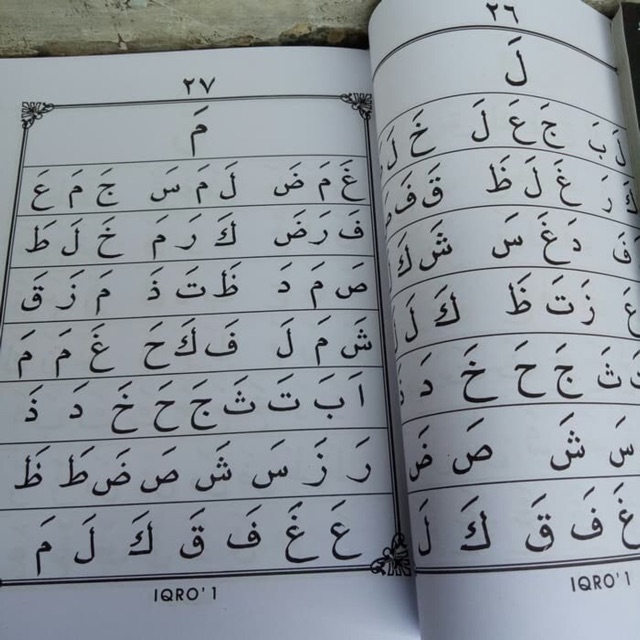 ٢٦
لَ
لَ بَ جَ عَ لَ خَ لَ
رَ غَ لَ ظَ قَ فَ
فَ دَ غَ سَ شَ كَ
عَ زَ تَ ظَ كَ لَ
ثَ جَ حَ خَ دَ
سَ شَ صَ ضَ
غَ فَ قَ كَ لَ
IQRO' 1
٢٧
مَ
غَ مَ ضَ لَ مَ سَ جَ مَ عَ
فَ رَ ضَ كَ رَ مَ خَ لَ طَ
صَ مَ دَ ظَ تَ ذَ مَ زَ قَ
شَ مَ لَ فَ كَ حَ غَ مَ مَ
اَ بَ تَ ثَ جَ حَ خَ دَ ذَ
رَ زَ سَ شَ صَ ضَ طَ ظَ
عَ غَ فَ قَ كَ لَ مَ
IQRO' 1